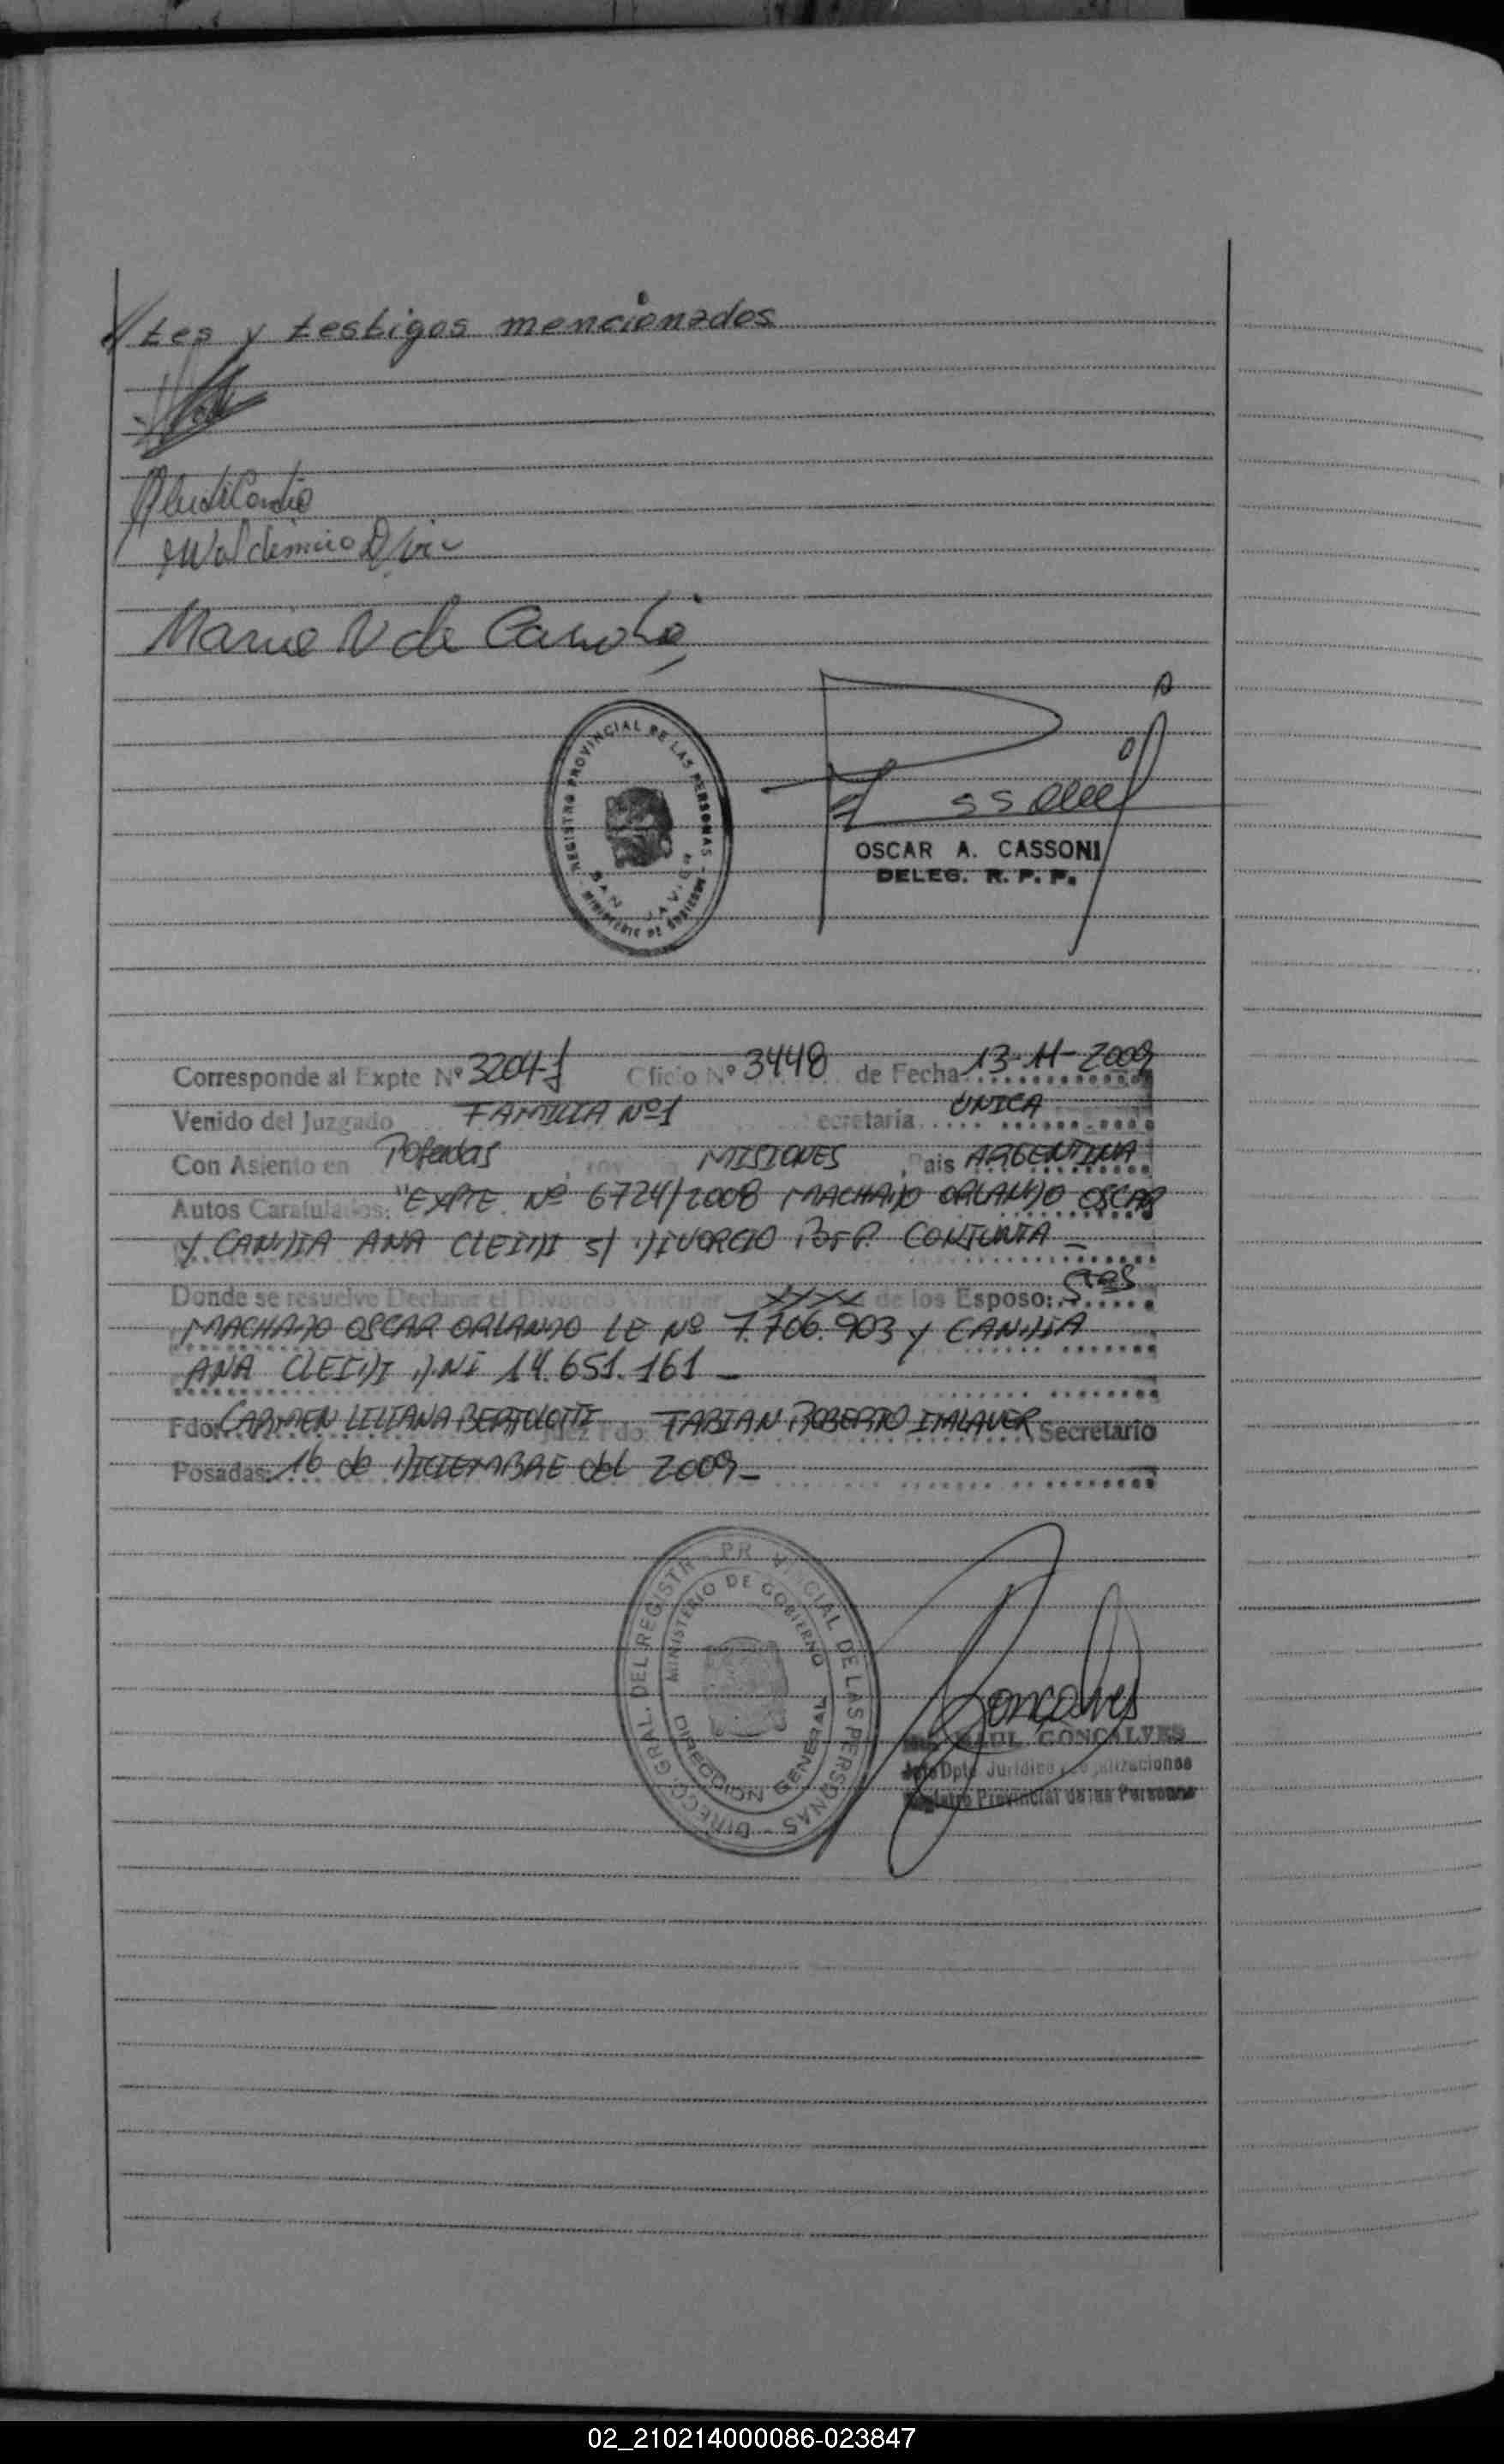 tes y testigos mencionados
Maria N de
REGISTRO PROVINCIAL DE LAS PERSONAS
SAN JAVIER
MINISTERIO DE GOBIERNO
OSCAR A. CASSONI
DELEG. R. P. P.
Corresponde al Expte Nº 3204-J Oficio Nº 3448 de Fecha 13-11-2009
Venido del Juzgado FAMILIA Nº1 Secretaría UNICA
Con Asiento en Posadas, Provincia MISIONES, Pais ARGENTINA
Autos Caratulados: "EXPTE. Nº 6724/2008 MACHADO ORLANDO OSCAR
Y CANDIA ANA CLEIDI S/ DIVORCIO CONJUNTA -
Donde se resuelve Declarar el Divorcio Vincular XXXX de los Esposo: Sres
MACHADO OSCAR ORLANDO LE Nº 7.706.903 y CANDIA
ANA CLEIDI DNI 14.651.161 -
Fdo. CARMEN LILIANA BERTOLOTTI Juez Fdo. FABIAN ROBERTO Secretario
Posadas: 16 de DICIEMBRE del 2009-
DIRECC. GRAL. DEL REGISTR PR VI CIAL DE LAS PERSONAS
MINISTERIO DE GOBIERNO
DIRECCION GENERAL
Gonçalves
RAUL GONÇALVES
Jefe Dpto Juridico
Registro Provincial de las Personas
02_210214000086-023847